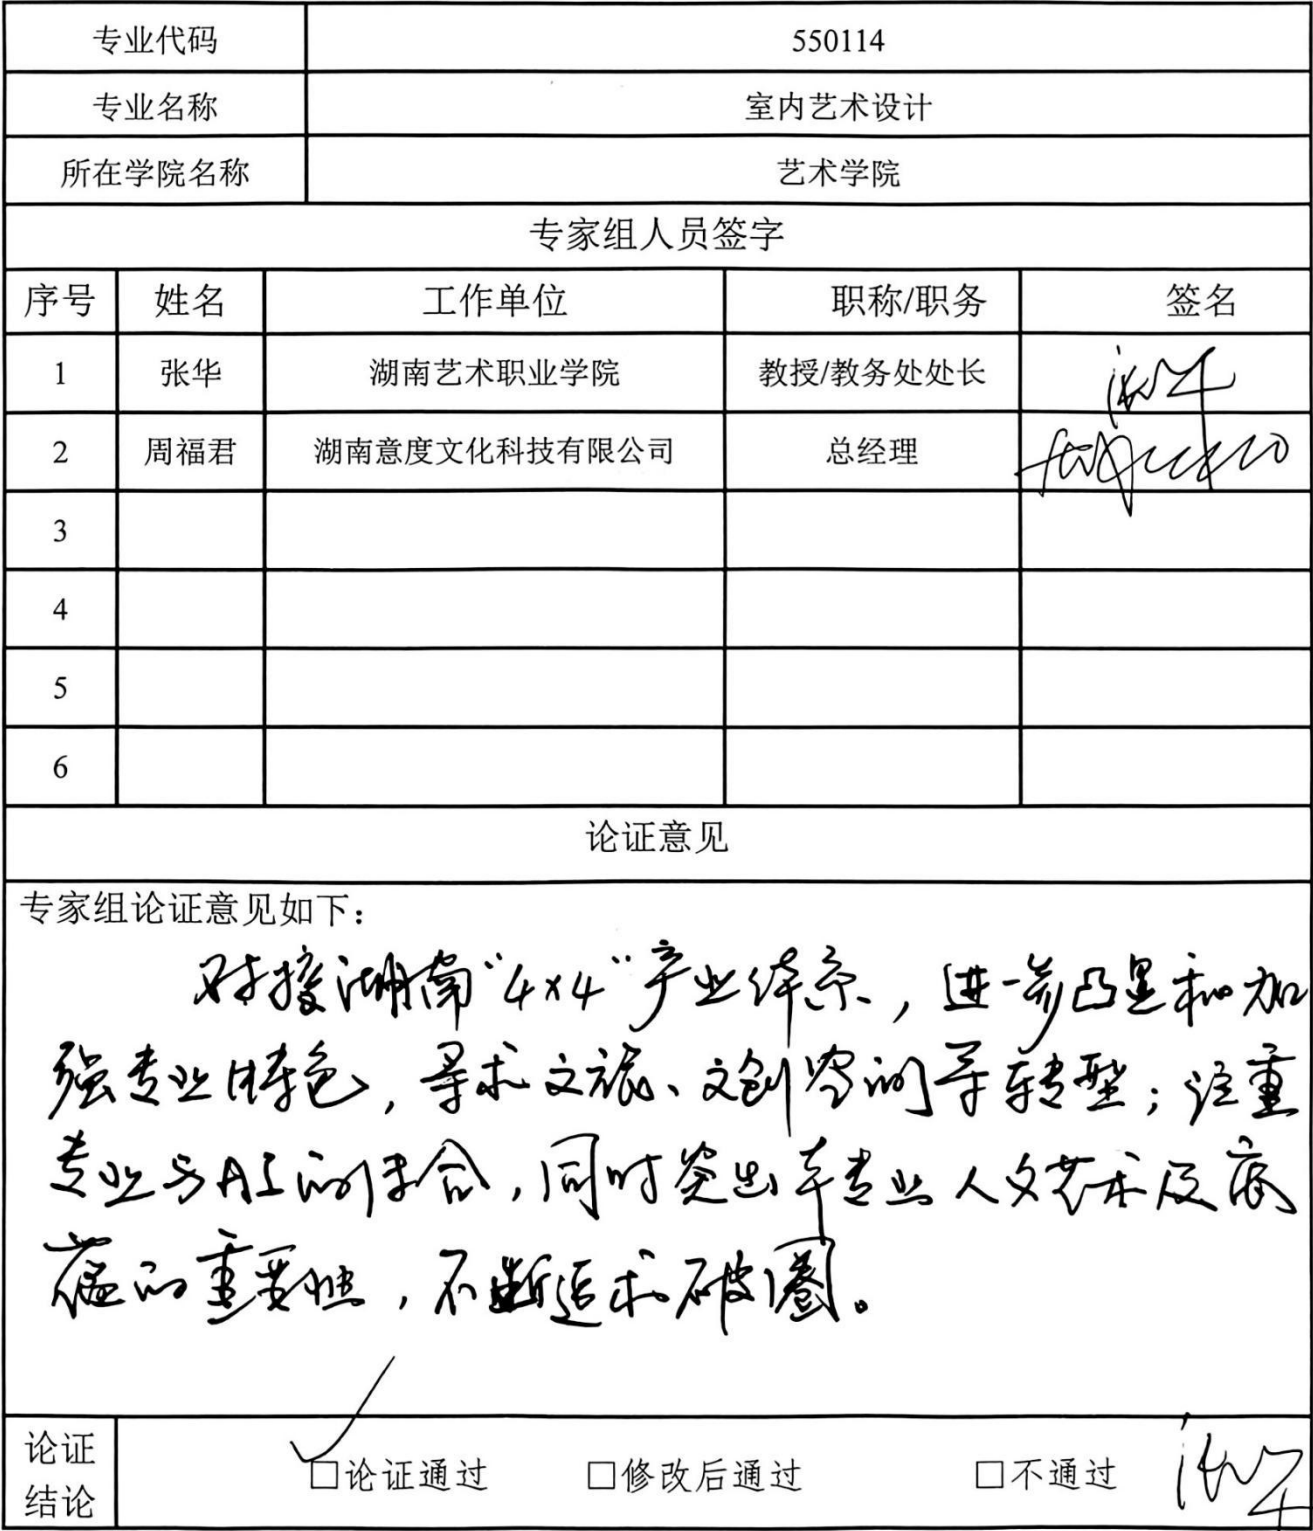 专业代码 550114
专业名称 室内艺术设计
所在学院名称 艺术学院
专家组人员签字
序号 姓名 工作单位 职称/职务 签名
1 张华 湖南艺术职业学院 教授/教务处处长 张华
2 周福君 湖南意度文化科技有限公司 总经理
3
4
5
6
论证意见
专家组论证意见如下：
对接湖南“4×4”产业体系，进一步凸显和加
强专业特色，寻求文旅、文创空间等转型；注重
专业与AI的结合，同时突出本专业人文艺术及底
蕴的重要性，不断追求破圈。
论证
结论 □论证通过 □修改后通过 □不通过 张华